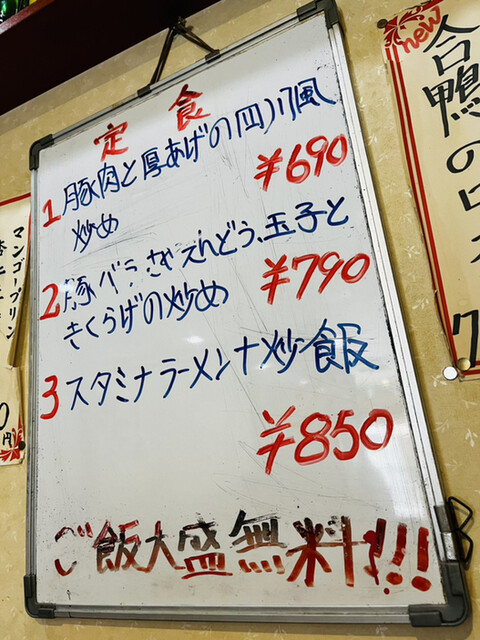 定食
1 豚肉と厚あげの四川風
炒め
¥690
2 豚バラ、さやえんどう、玉子と
きくらげの炒め
¥790
3 スタミナラーメン+炒飯
¥850
ご飯大盛無料!!!
マンゴープリン
円
new
合鴨の